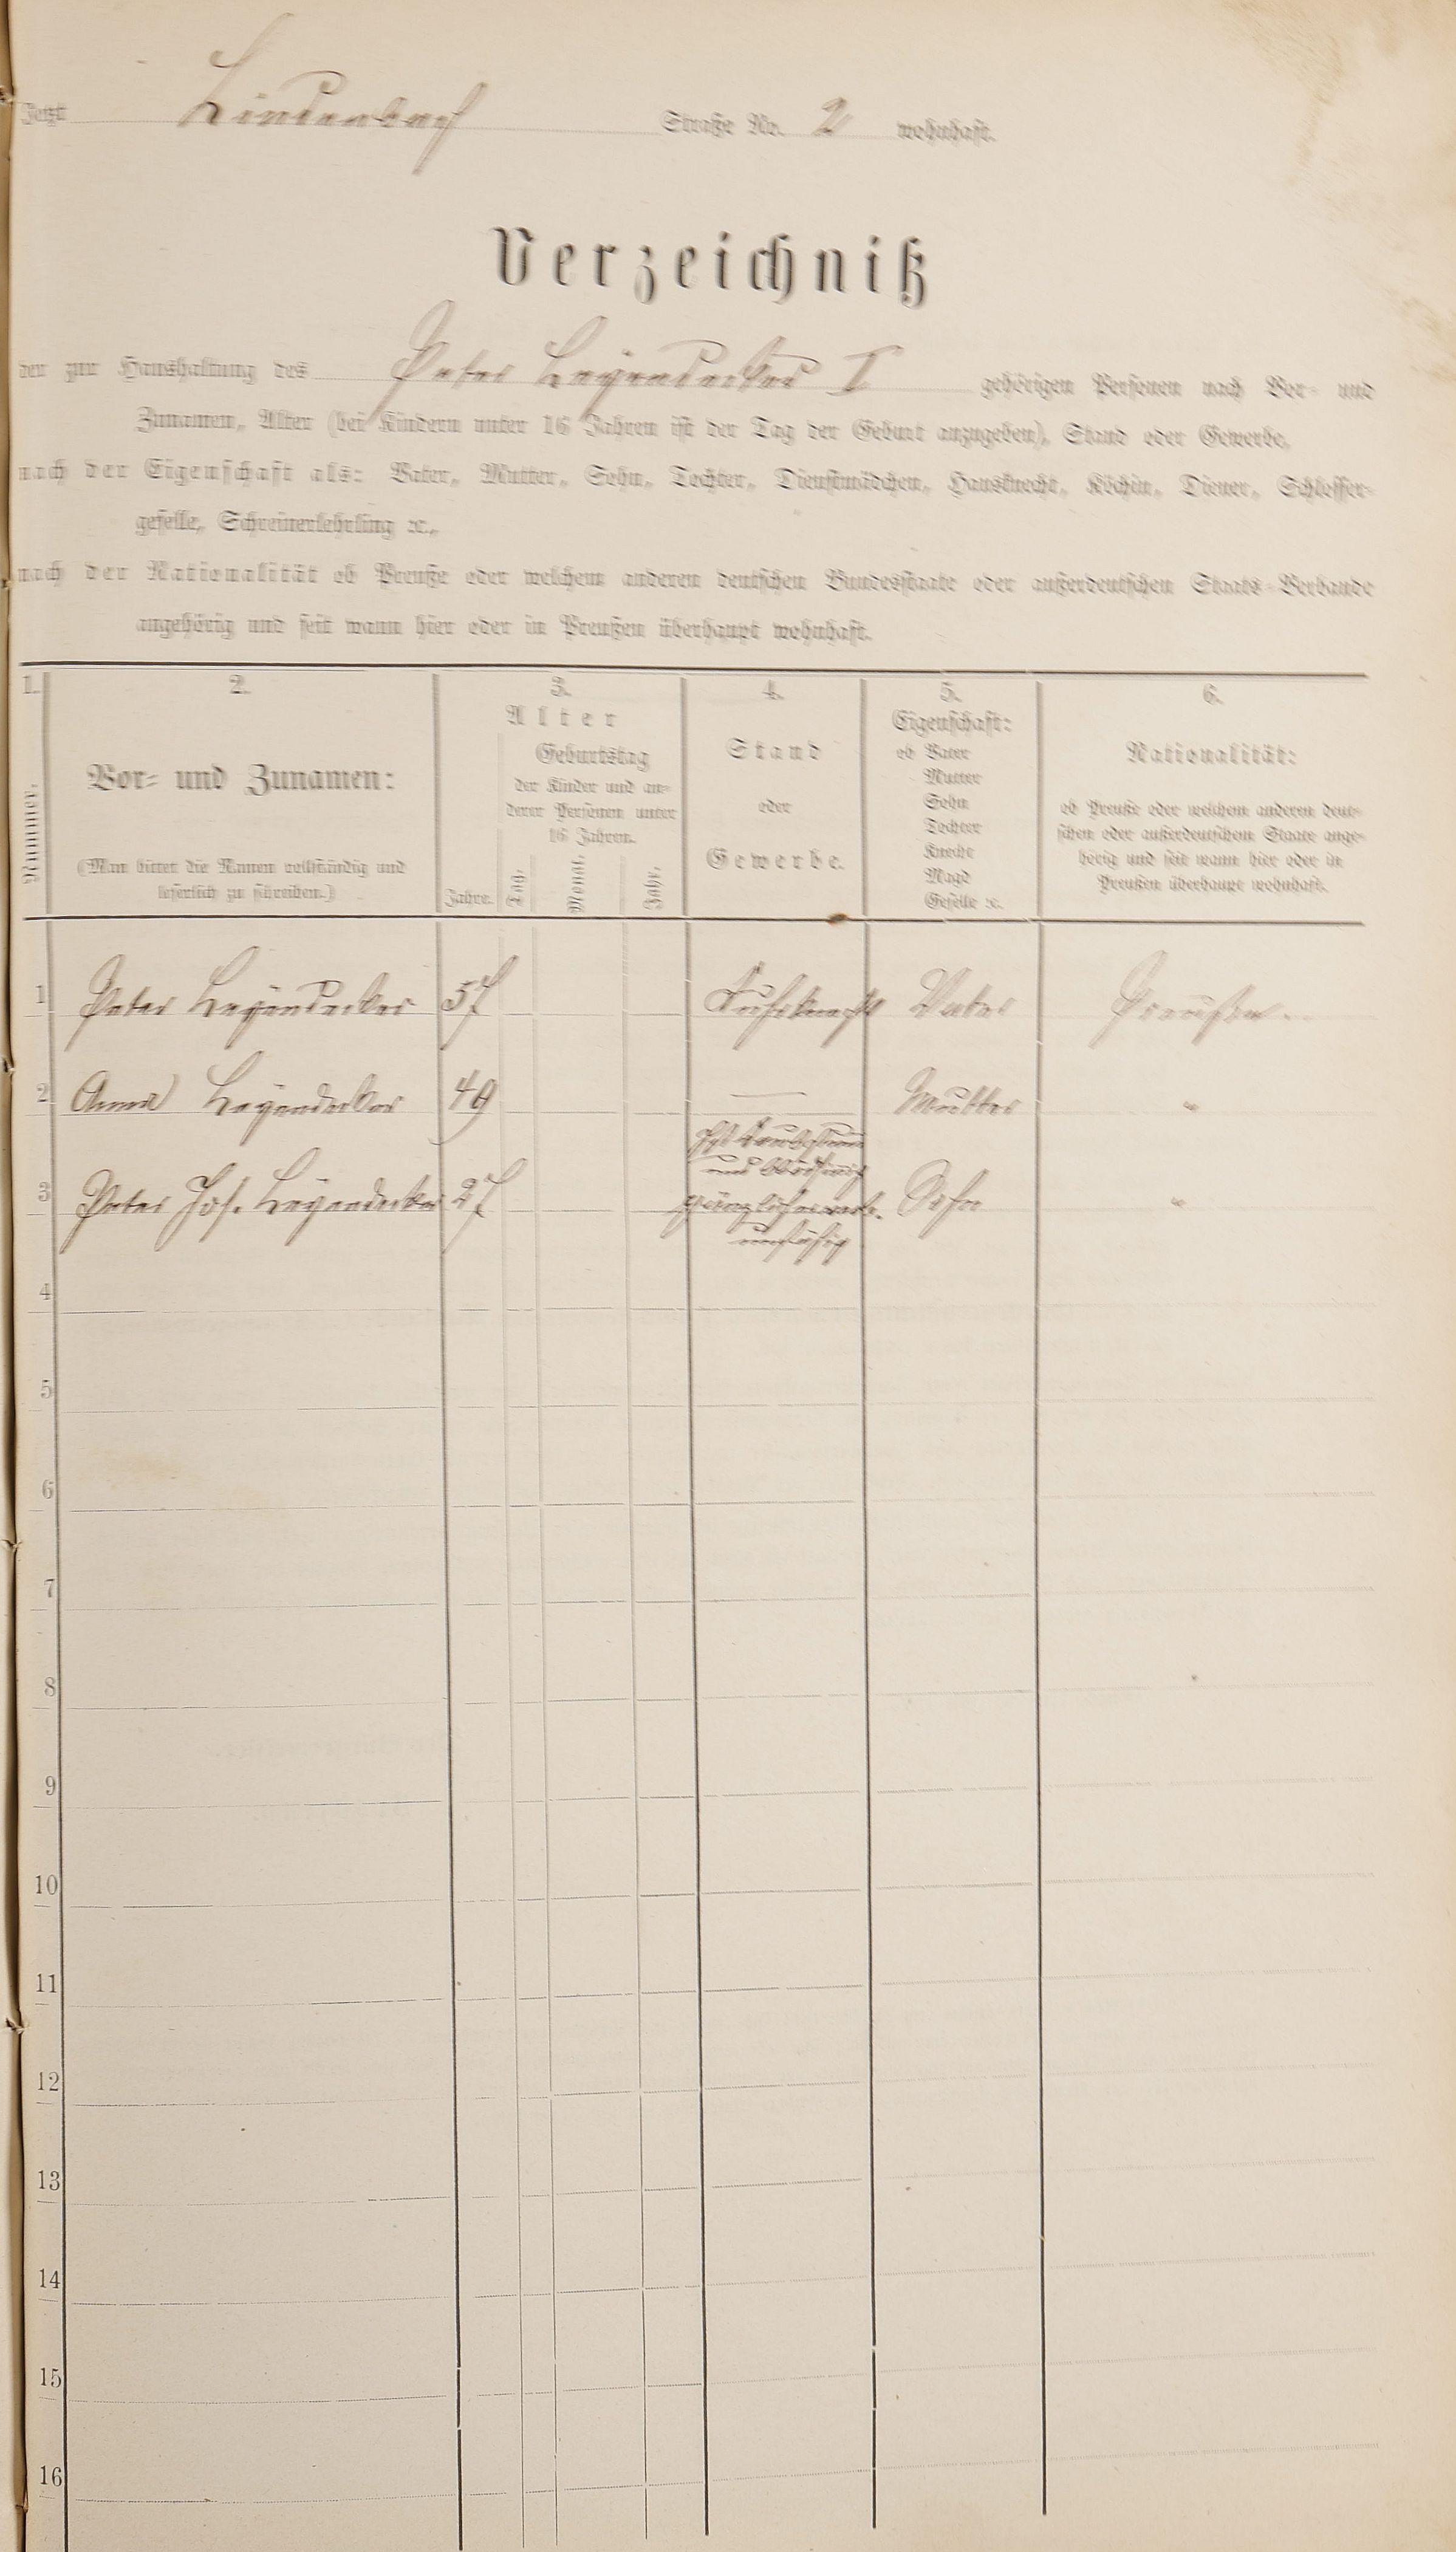 Jetzt Lindenbach Straße No. 2 wohnhaft.
Verzeichniß
der zur Haushaltung des Peter Leyendecker I gehörigen Personen nach Vor- und
Zunamen, Alter (bei Kindern unter 16 Jahren ist der Tag der Geburt anzugeben), Stand oder Gewerbe,
nach der Eigenschaft als: Vater, Mutter, Sohn, Tochter, Dienstmädchen, Hausknecht, Köchin, Diener, Schlosser-
geselle, Schreinerlehrling ꝛc.,
nach der Nationalität ob Preuße oder welchem anderen deutschen Bundesstaate oder außerdeutschen Staats-Verbande
angehörig und seit wann hier oder in Preußen überhaupt wohnhaft.
1. 2. 3. 4. 5. 6.
Nummer.
Vor- und Zunamen:
(Man bittet die Namen vollständig und
leserlich zu schreiben.)
Alter
Geburtstag
der Kinder und an-
derer Personen unter
16 Jahren.
Jahre. Tag. Monat. Jahr.
Stand
oder
Gewerbe.
Eigenschaft:
ob Vater
Mutter
Sohn
Tochter
Knecht
Magd
Geselle ꝛc.
Nationalität:
ob Preuße oder welchem anderen deut-
schen oder außerdeutschem Staate ange-
hörig und seit wann hier oder in
Preußen überhaupt wohnhaft.
1 Peter Leyendecker 57 Vater Preußen.
2 Anna Leyendecker 49 — Mutter "
3 Peter Jos. Leyendecker 27 ist taubstumm
und
gänzlich erwerbs-
unfähig Sohn "
4
5
6
7
8
9
10
11
12
13
14
15
16